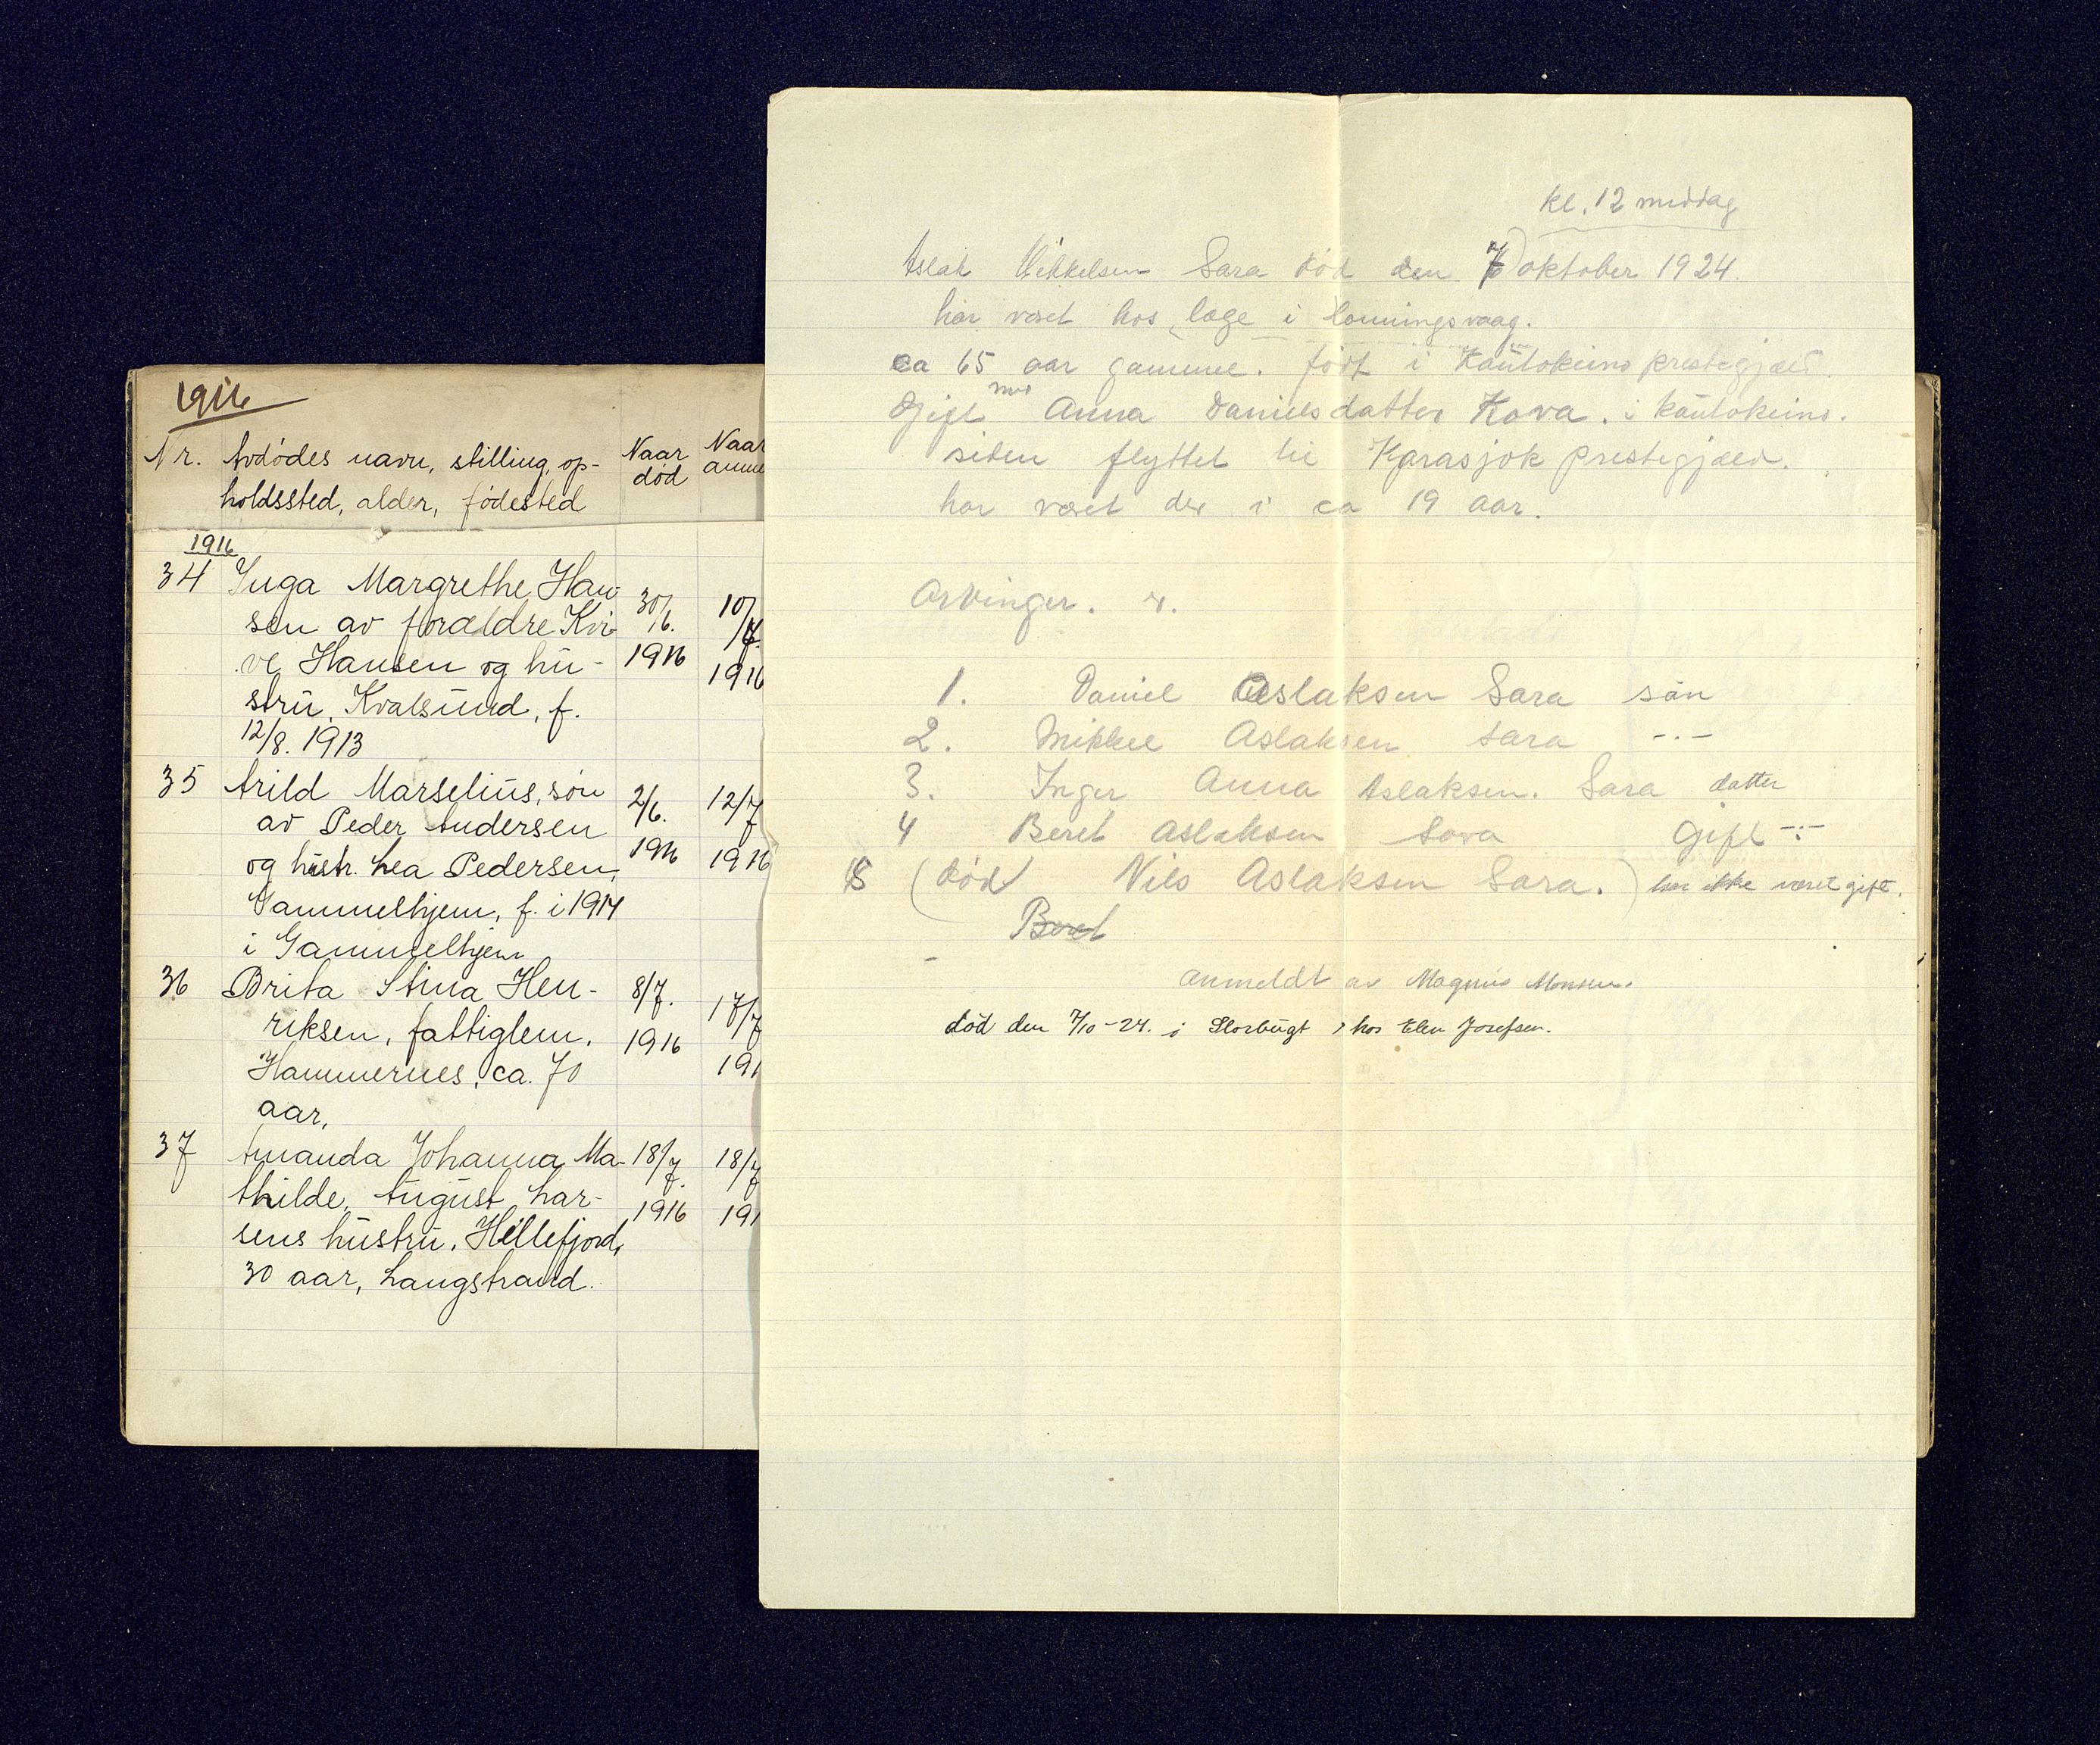 1916
Nr. Avdødes navn, stilling, op-
holdssted, alder, fødested
Naar
død
Naar
anme
1916
34 Inga Margrethe Han-
sen av forældre Kri-
ve Hansen og hu-
stru, Kvalsund, f.
12/8. 1913
30/6.
1916
10/7.
1916
35 Arild Marselius, søn
av Peder Andersen
og hustr. Lea Pedersen,
Gammelhjem, f. i 1914
i Gammelhjem
2/6.
1916
12/7
1916
36 Brita Stina Hen-
riksen, fattiglem,
Hammernes, ca. 70
aar,
8/7.
1916
17/7
191
37 Amanda Johanna Ma-
thilde, August Lar-
sens hustru, Hellefjord,
30 aar, Langstrand.
18/7.
1916
18/7
191
kl. 12 middag
Aslak Mikkelsen Sara død den 7 oktober 1924.
har været hos læge i Honningsvaag.
ca 65 aar gammel. født i Kautokeino prestegjæld.
Gift med Anna Danielsdatter Kova. i Kautokeino.
siden flyttet til Karasjok prestegjæld.
har været der i ca 19 aar.
Arvinger. 4.
1. Daniel Aslaksen Sara sön
2. Mikkel Aslaksen Sara -.-
3. Inger Anna Aslaksen. Sara datter
4 Beret Aslaksen Sara Gift -:-
5 (død Nils Aslaksen Sara.) har ikke været gift.
Beret
anmeldt av Magnus Monsen.
død den 7/10-24. i Storbugt, hos Elen Josefsen.